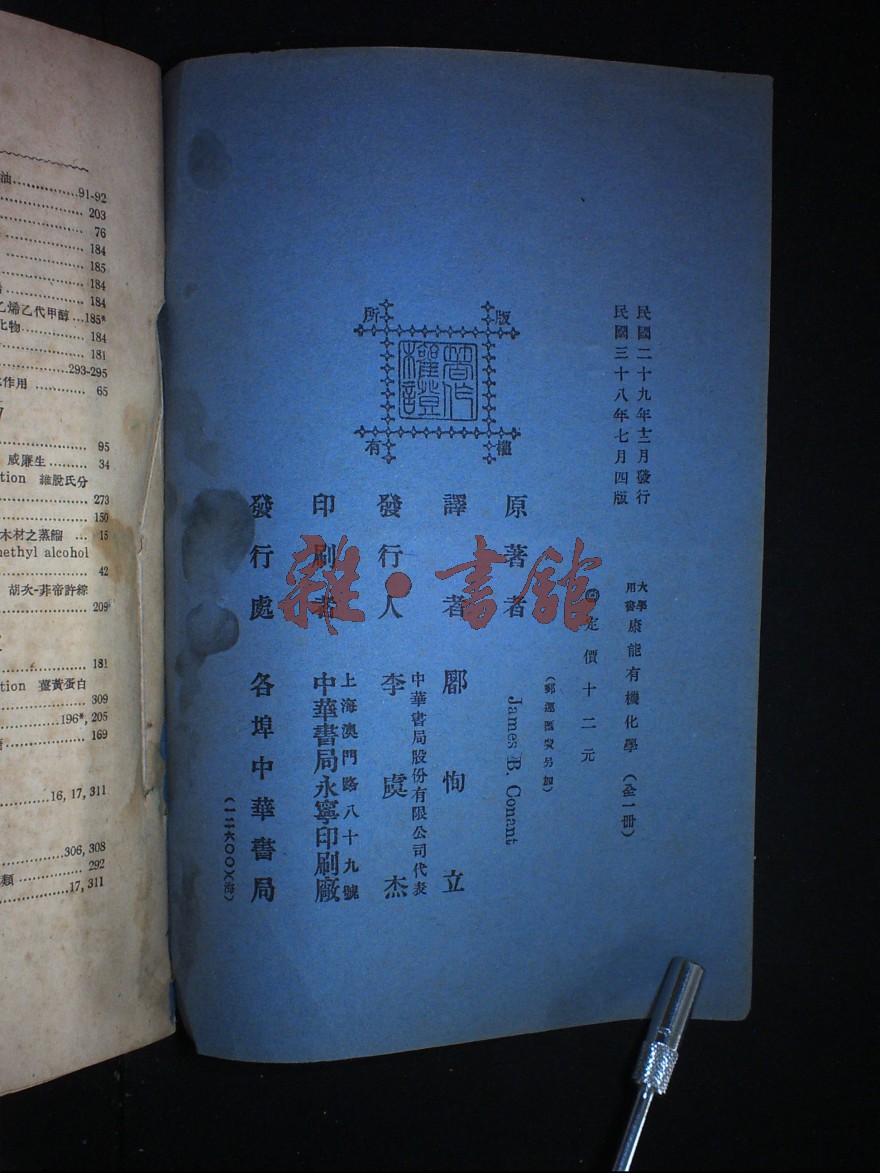 油 91-92
203
76
184
185
184
184
乙烯乙代甲醇 185*
化物 184
181
293-295
作用 65
95
威廉生 34
tion 維脫氏分
273
150
木材之蒸餾 15
methyl alcohol
42
胡次-菲帝許綜
209
181
tion 薑黃蛋白
309
196*, 205
169
16, 17, 311
306, 308
類 292
17, 311
民國二十九年十二月發行
民國三十八年七月四版
版權所有
大學用書 康能有機化學(全一冊)
定價十二元
(郵運匯費另加)
原著者 James B. Conant
譯者 鄘恂立
發行人 中華書局股份有限公司代表 李虞杰
印刷者 上海澳門路八十九號 中華書局永寧印刷廠
發行處 各埠中華書局
(一二六〇〇)(海)
雜·書館